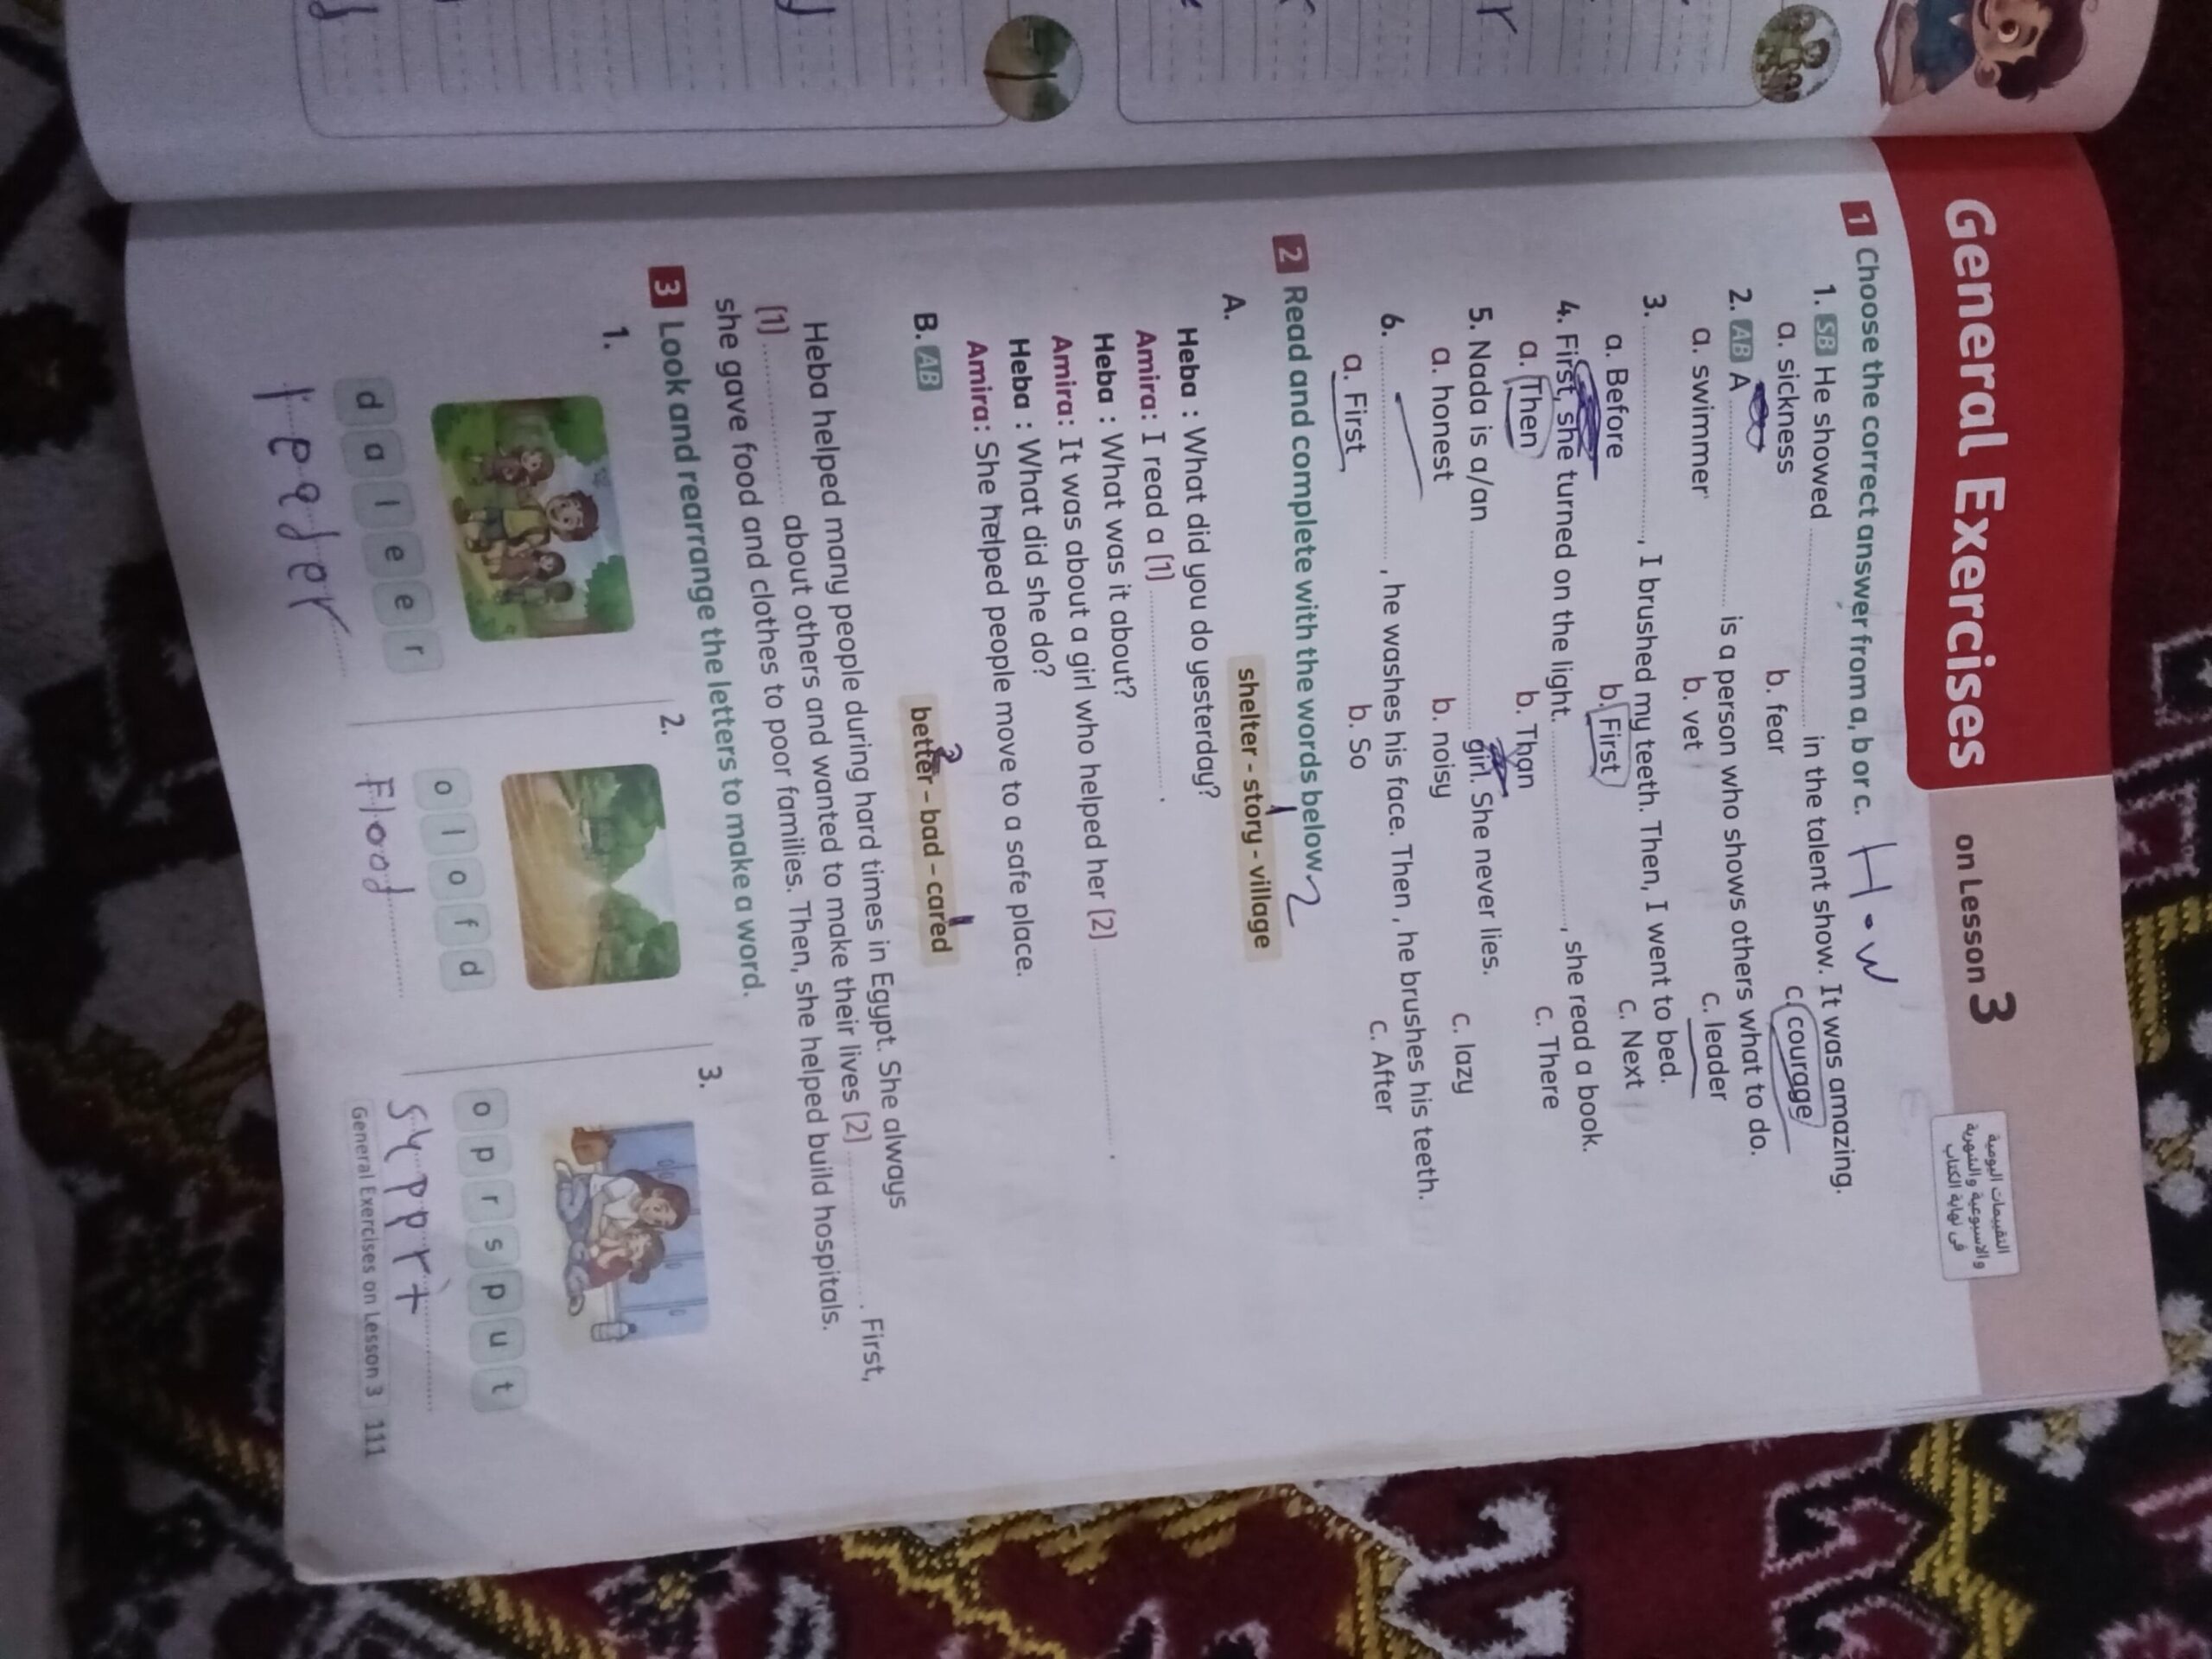 General Exercises on Lesson 3
التقييمات اليومية
والأسبوعية والشهرية
فى نهاية الكتاب
1 Choose the correct answer from a, b or c. H.w
1. SB He showed .................... in the talent show. It was amazing.
a. sickness b. fear c. courage
2. AB A .................... is a person who shows others what to do.
a. swimmer b. vet c. leader
3. ...................., I brushed my teeth. Then, I went to bed.
a. Before b. First c. Next
4. First, she turned on the light. ...................., she read a book.
a. Then b. Than c. There
5. Nada is a/an .................... girl. She never lies.
a. honest b. noisy c. lazy
6. ...................., he washes his face. Then , he brushes his teeth.
a. First b. So c. After
2 Read and complete with the words below. 2
A. shelter - story - village
1
Heba : What did you do yesterday?
Amira: I read a (1) .................... .
Heba : What was it about?
Amira: It was about a girl who helped her (2) .................... .
Heba : What did she do?
Amira: She helped people move to a safe place.
B. AB better - bad - cared
2 1
Heba helped many people during hard times in Egypt. She always
(1) .................... about others and wanted to make their lives (2) .................... . First,
she gave food and clothes to poor families. Then, she helped build hospitals.
3 Look and rearrange the letters to make a word.
1. 2. 3.
d a l e e r
o l o f d
o p r s p u t
leader
Flood
supprt
General Exercises on Lesson 3 111